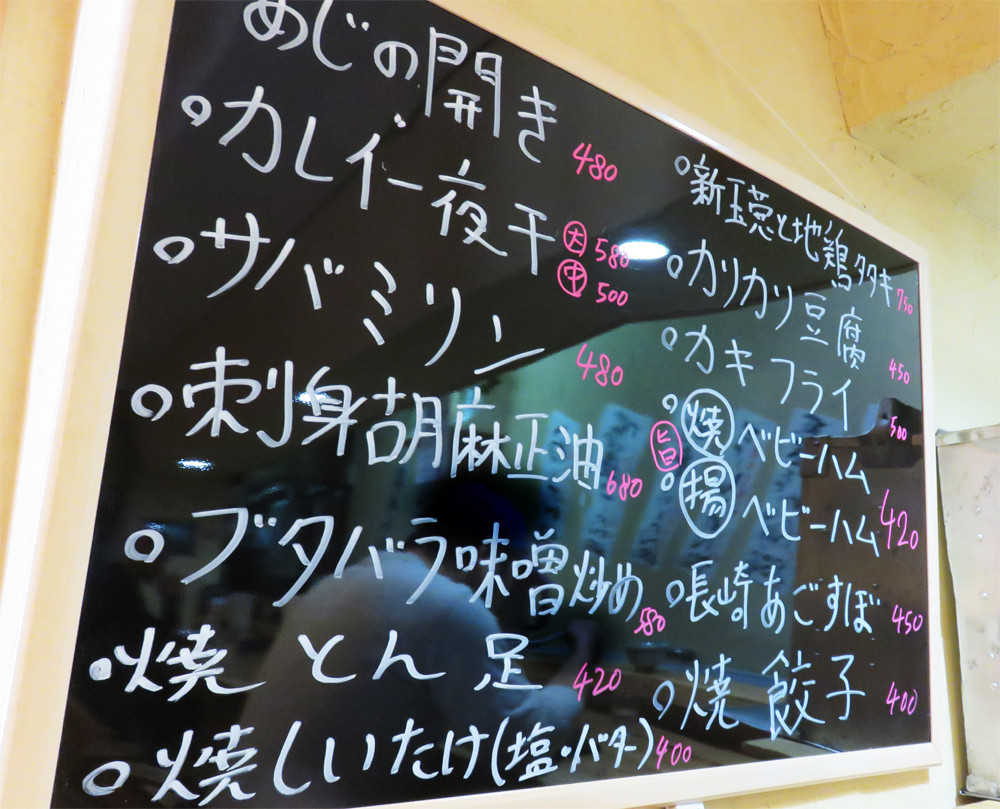 あじの開き 480
○カレイ一夜干 大580
中500
○サバミリン 480
○刺身胡麻正油 680
○ブタバラ味噌炒め 580
○焼とん足 420
○焼しいたけ(塩・バター) 400
○新玉葱と地鶏タタキ 750
○カリカリ豆腐 450
○カキフライ 500
○焼ベビーハム
旨
○揚ベビーハム 420
○長崎あごすぼ 450
○焼餃子 400